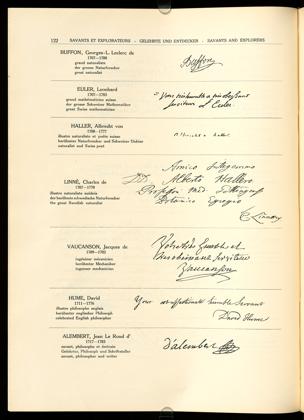 122 SAVANTS ET EXPLORATEURS - GELEHRTE UND ENTDECKER - SAVANTS AND EXPLORERS
BUFFON, Georges-L. Leclerc de
1707—1788
grand naturaliste
der grosse Naturforscher
great naturalist
Buffon
EULER, Leonhard
1707—1783
grand mathématicien suisse
der grosse Schweizer Mathematiker
great Swiss mathematician
Votre
serviteur L. Euler.
HALLER, Albrecht von
1708—1777
illustre naturaliste et poète suisse
berühmter Naturforscher und Schweizer Dichter
naturalist and Swiss poet
LINNÉ, Charles de
1707—1778
illustre naturaliste suédois
der berühmte schwedische Naturforscher
the great Swedish naturalist
Amico Integerrimo
Alberto Hallero
Botanico Egregio
C. Linnæus
VAUCANSON, Jacques de
1709—1782
ingénieux mécanicien
berühmter Mechaniker
ingenious mechanician
Votre très humble et
très obéissant serviteur
Vaucanson
HUME, David
1711—1776
illustre philosophe anglais
berühmter englischer Philosoph
celebrated English philosopher
Your most affectionate humble Servant
David Hume
ALEMBERT, Jean Le Rond d'
1717—1783
savant, philosophe et écrivain
Gelehrter, Philosoph und Schriftsteller
savant, philosopher and writer
d'alembert